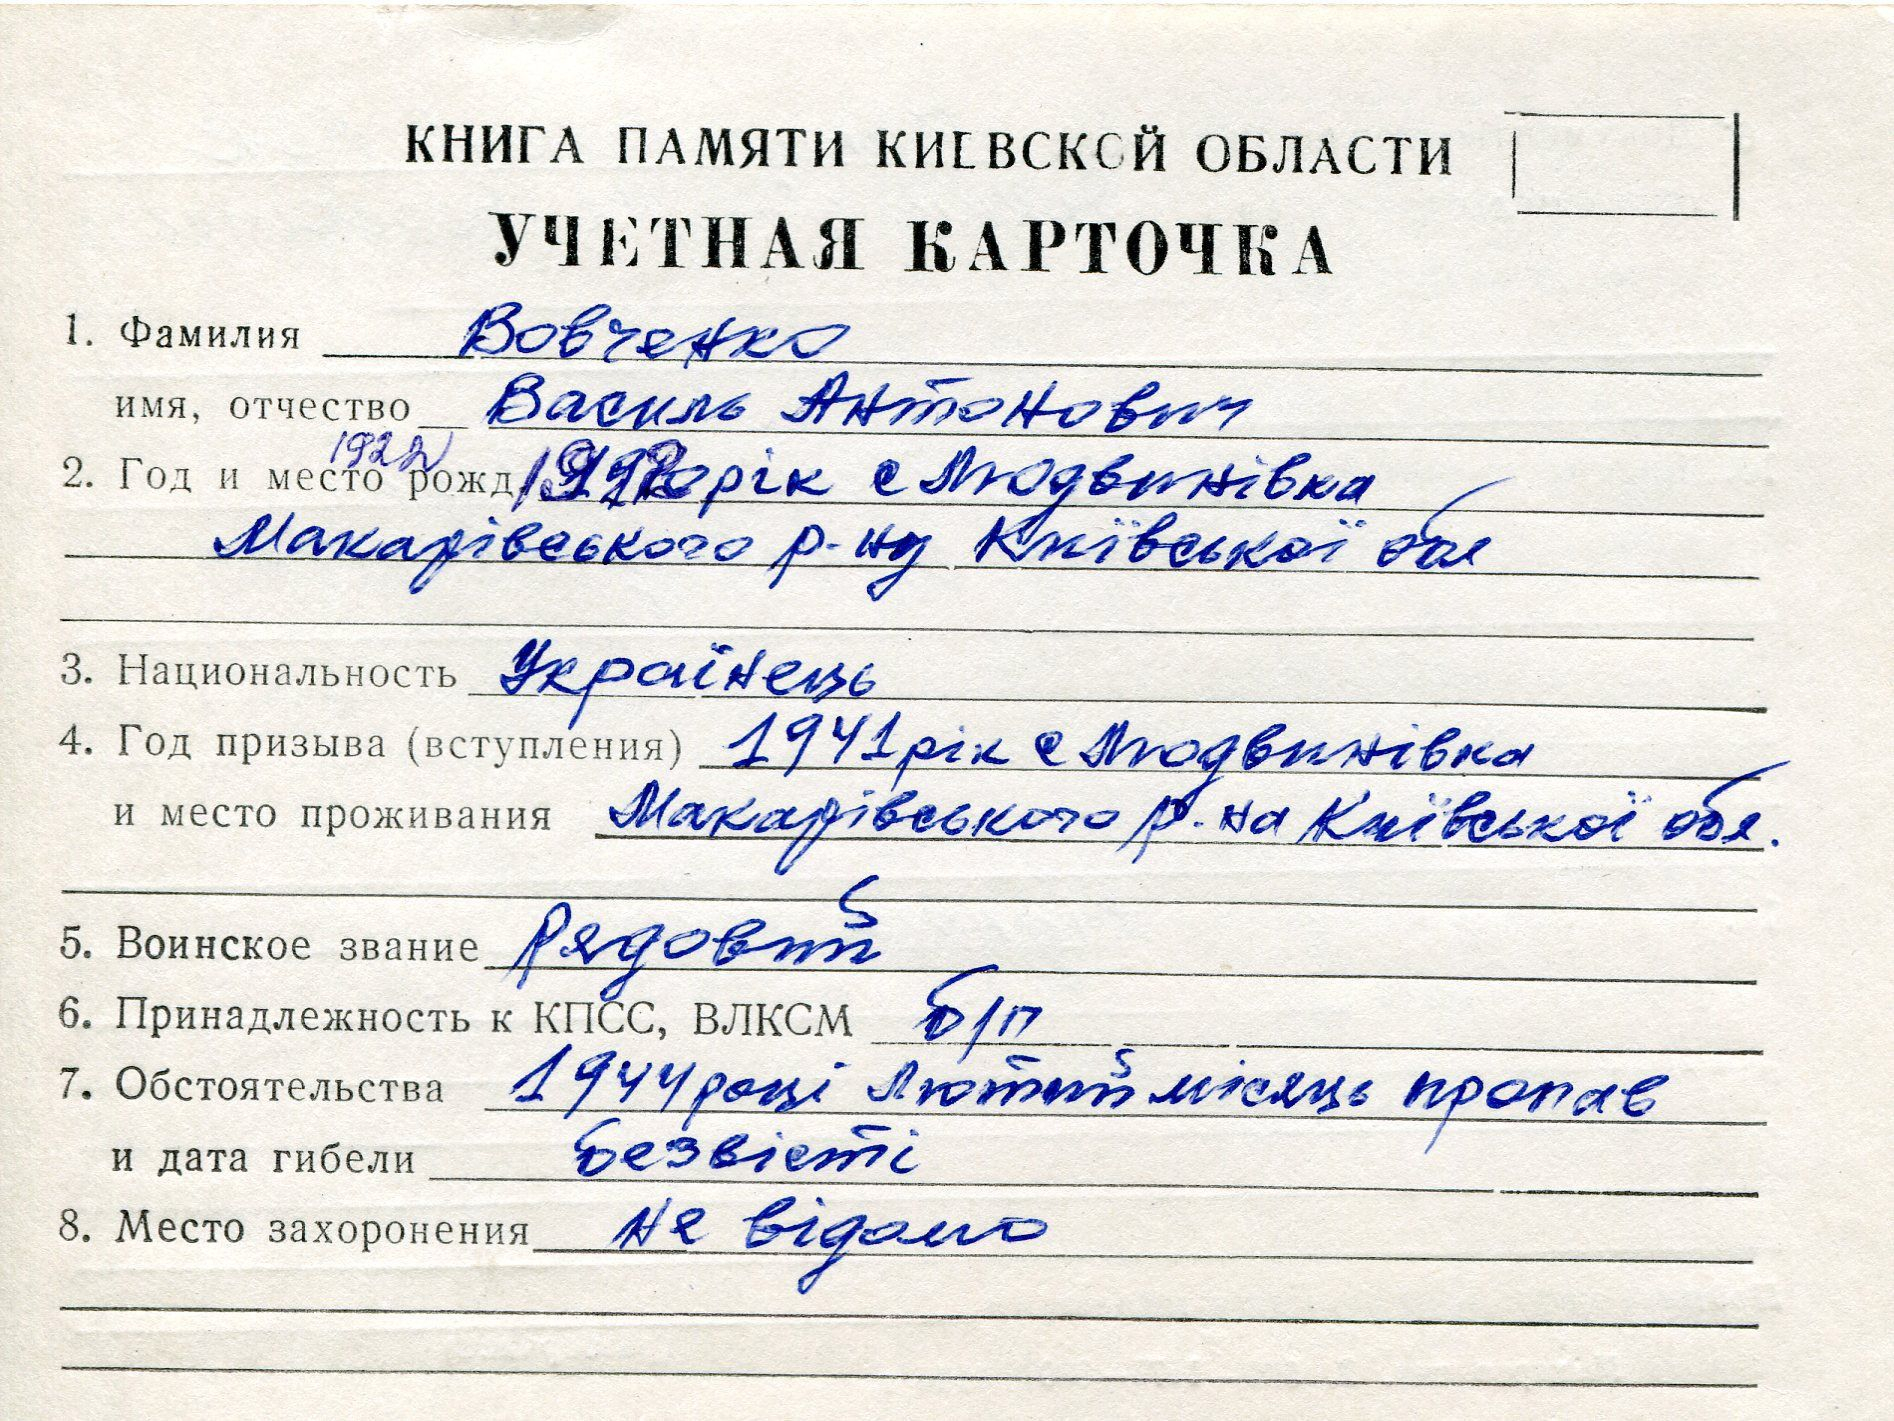 КНИГА ПАМЯТИ КИЕВСКОЙ ОБЛАСТИ
УЧЕТНАЯ КАРТОЧКА
1. Фамилия Вовченко
имя, отчество Василь Антонович
1922
2. Год и место рожд рік с Людвинівка
Макарівського р-ну Київської обл
3. Национальность Українець
4. Год призыва (вступления) 1941 рік с Людвинівка
и место проживания Макарівського р-на Київської обл.
5. Воинское звание Рядовий
6. Принадлежность к КПСС, ВЛКСМ б/п
7. Обстоятельства 1944 році Лютий місяць пропав
и дата гибели безвісті
8. Место захоронения не відомо